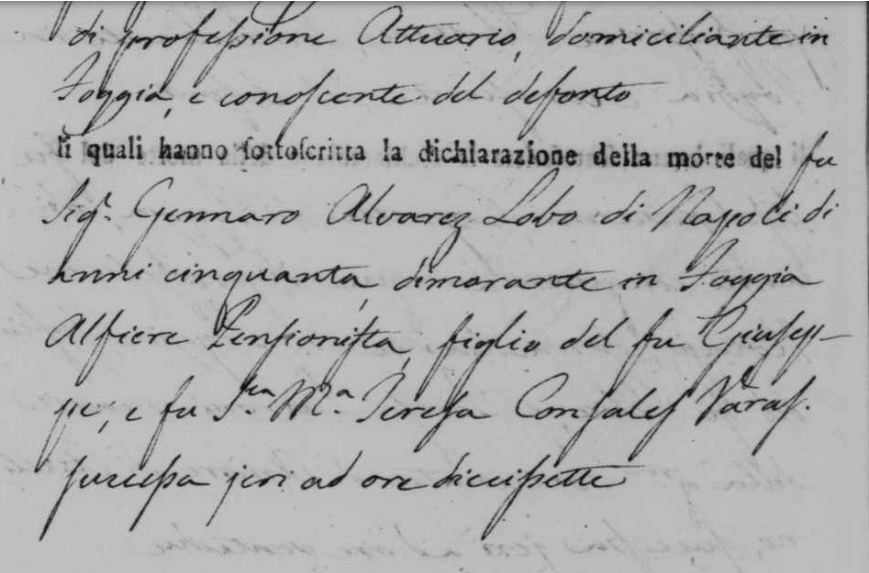 di professione Attuario, domiciliante in
Foggia, e conoscente del defonto
li quali hanno sottoscritta la dichiarazione della morte del fu
Sigr. Gennaro Alvarez Lobo di Napoli di
anni cinquanta, dimorante in Foggia
Alfiere Pensionista, figlio del fu Giusep-
pe, e fu S.ra M.a Teresa Consales
successa jeri ad ore diecisette